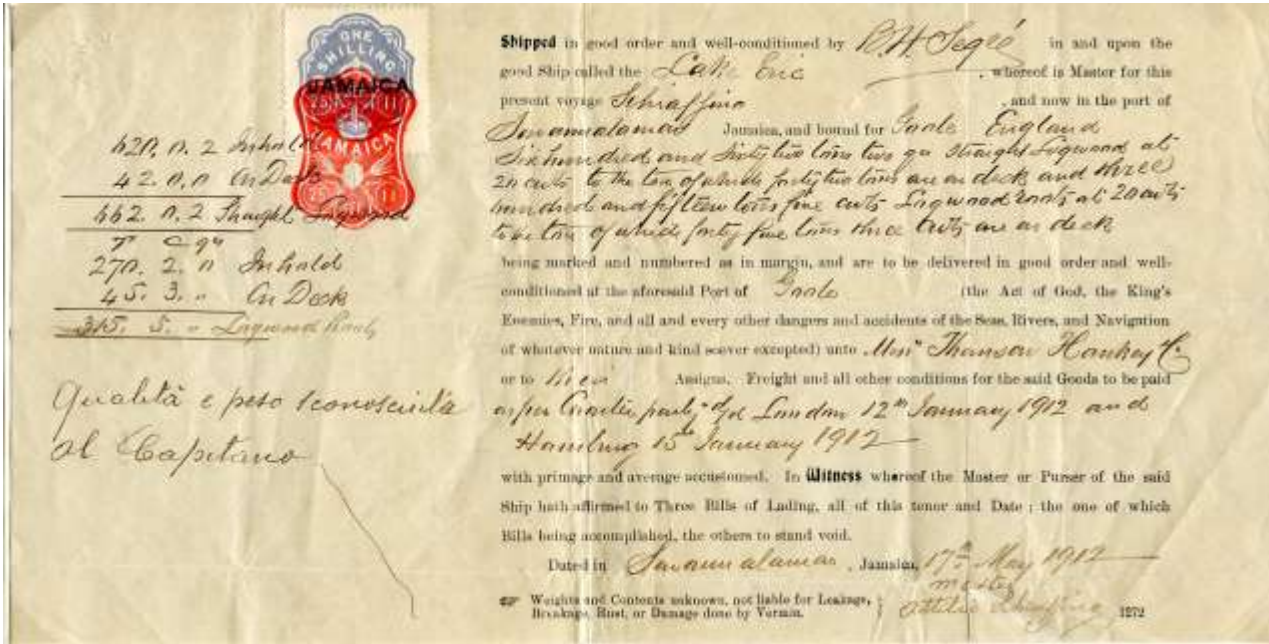 ONE
SHILLING
JAMAICA
25 11
JAMAICA
25 11
620. 0. 2 Inhold
42. 0. 0 On Deck
662. 0. 2 Straight Logwood
T C qrs
270. 2. 0 Inhold
45. 3. " On Deck
315. 5. " Logwood Roots
Qualità e peso sconosciuta
al Capitano
Shipped in good order and well-conditioned by R. H. Segré in and upon the
good Ship called the Lake Erie , whereof is Master for this
present voyage Schiaffino , and now in the port of
Savannalamar Jamaica, and bound for Goole England
Six hundred and Sixty two tons two qrs Straight Logwood at
20 cwts to the ton of which forty two tons are on deck and three
hundred and fifteen tons five cwts Logwood roots at 20 cwts
to the ton of which forty five tons three cwts are on deck
being marked and numbered as in margin, and are to be delivered in good order and well-
conditioned at the aforesaid Port of Goole (the Act of God, the King's
Enemies, Fire, and all and every other dangers and accidents of the Seas, Rivers, and Navigation
of whatever nature and kind soever excepted) unto Messrs Thomson Hankey Co
or to their Assigns. Freight and all other conditions for the said Goods to be paid
as per Charter party dd London 12th January 1912 and
Hamburg 15th January 1912
with primage and average accustomed. In Witness whereof the Master or Purser of the said
Ship hath affirmed to Three Bills of Lading, all of this tenor and Date; the one of which
Bills being accomplished, the others to stand void.
Dated in Savannalamar, Jamaica, 17th May 1912
master
Weights and Contents unknown, not liable for Leakage,
Breakage, Rust, or Damage done by Vermin.
Attilio Schiaffino 1272